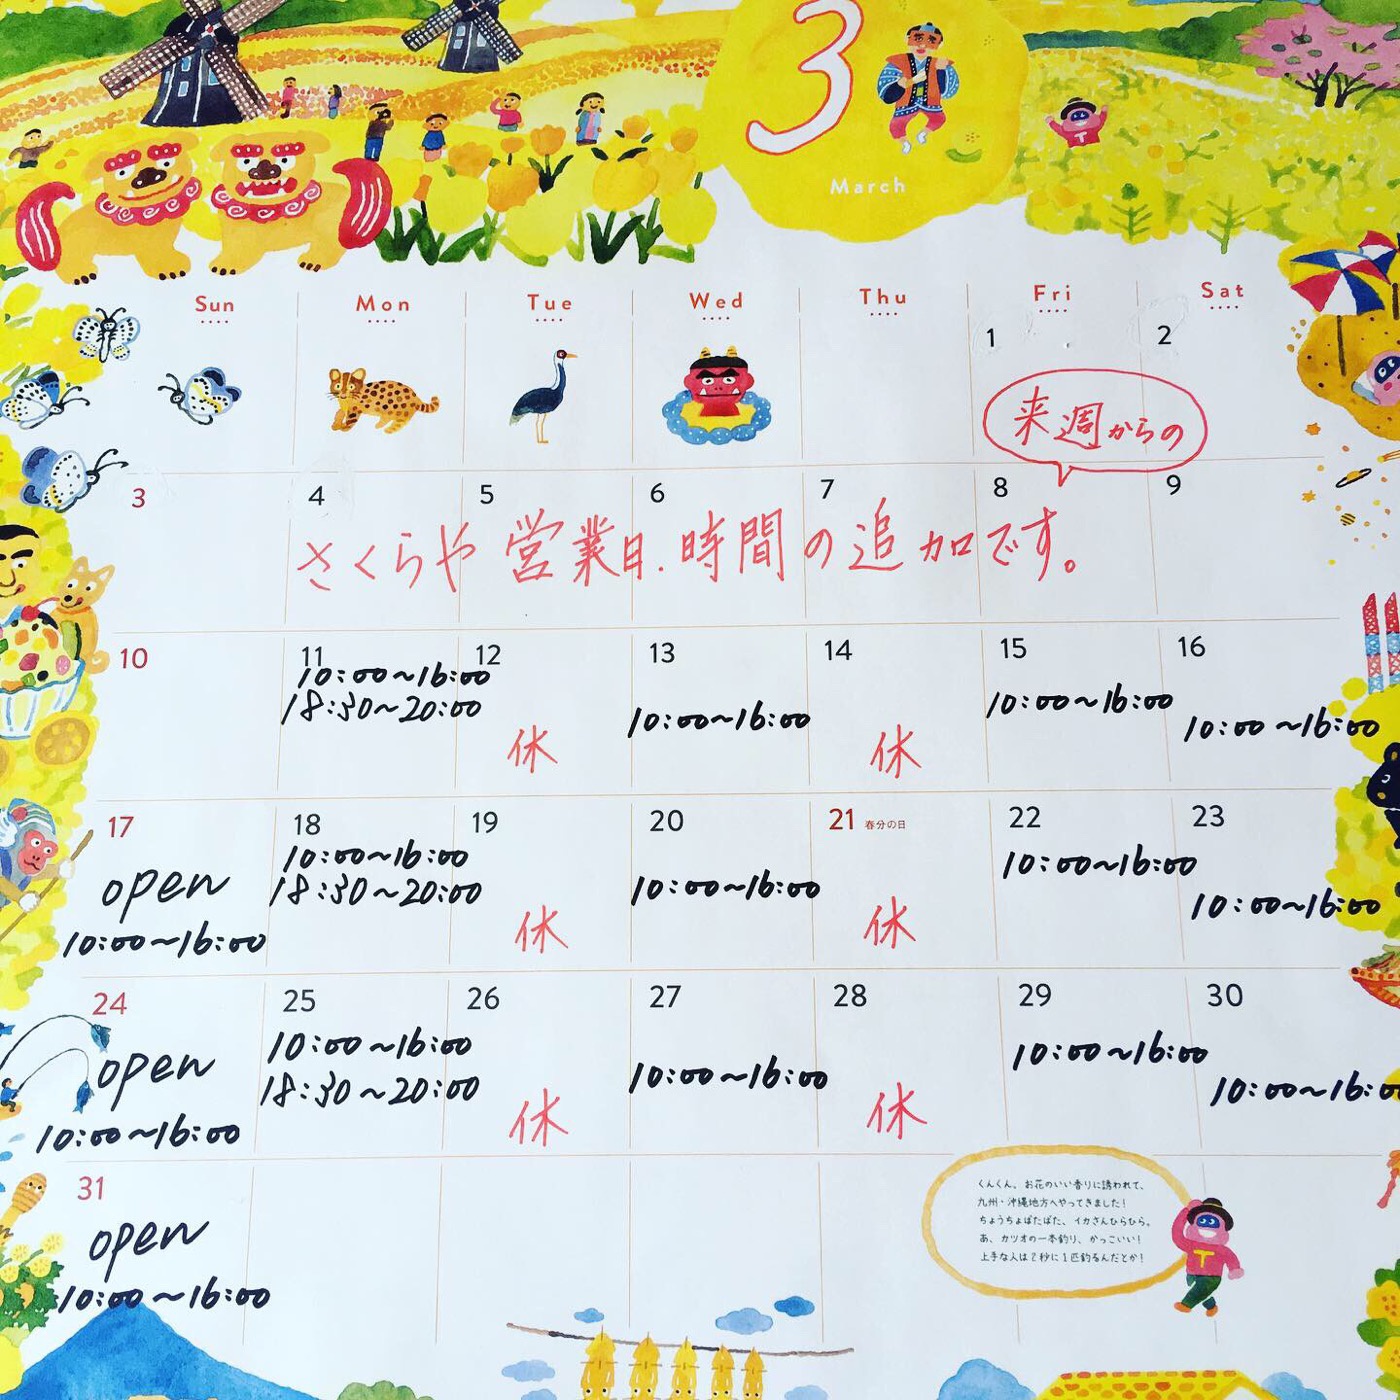 3
March
Sun Mon Tue Wed Thu Fri Sat
1 2
来週からの
3 4 5 6 7 8 9
さくらや 営業日.時間の追加です。
10 11 12 13 14 15 16
10:00~16:00
18:30~20:00
休
10:00~16:00
休
10:00~16:00
10:00~16:00
17 18 19 20 21 春分の日 22 23
open
10:00~16:00
10:00~16:00
18:30~20:00
休
10:00~16:00
休
10:00~16:00
10:00~16:00
24 25 26 27 28 29 30
open
10:00~16:00
10:00~16:00
18:30~20:00
休
10:00~16:00
休
10:00~16:00
10:00~16:00
31
open
10:00~16:00
くんくん、お花のいい香りに誘われて、
九州・沖縄地方へやってきました!
ちょうちょぱたぱた、イカさんひらひら。
あ、カツオの一本釣り、かっこいい!
上手な人は2秒に1匹釣るんだとか!
T
T